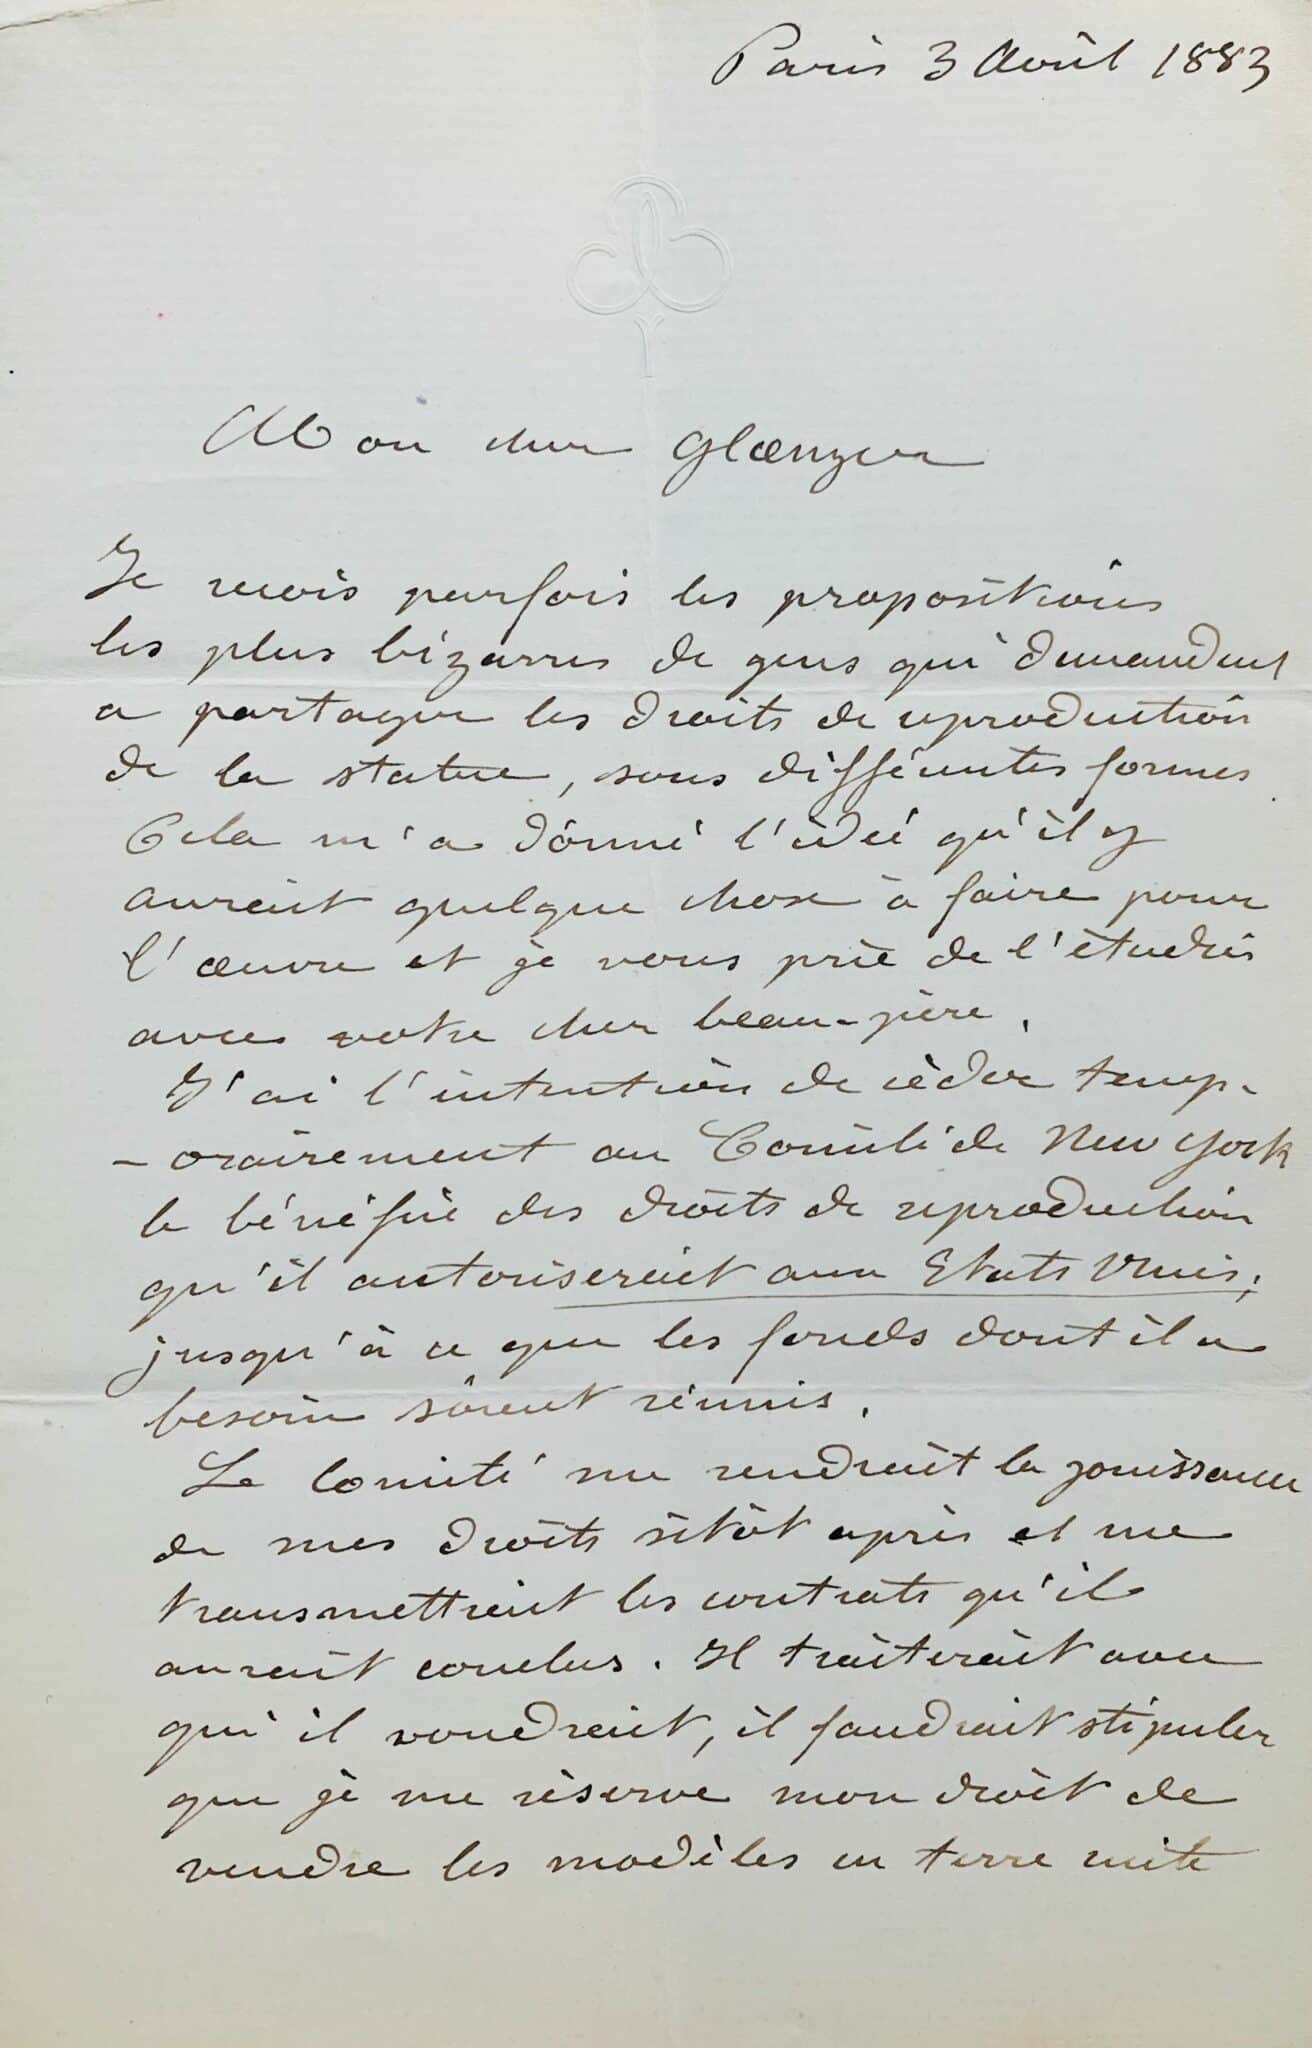 Paris 3 Avril 1883
Mon cher Glaenzer
Je reçois parfois les propositions
les plus bizarres de gens qui demandent
a partager les droits de reproduction
de la statue, sous différentes formes
Cela m'a donné l'idée qu'il y
aurait quelque chose à faire pour
l'œuvre et je vous prie de l'étudier
avec votre cher beau-père.
J'ai l'intention de céder temp-
-orairement au Comité de New York
le bénéfice des droits de reproduction
qu'il autoriserait aux Etats Unis,
jusqu'à ce que les fonds dont il a
besoin soient réunis.
Le Comité me rendrait la jouissance
de mes droits sitôt après et me
transmettrait les contrats qu'il
aurait conclus. Il traiterait avec
qui il voudrait, il faudrait stipuler
que je me réserve mon droit de
vendre les modèles en terre cuite